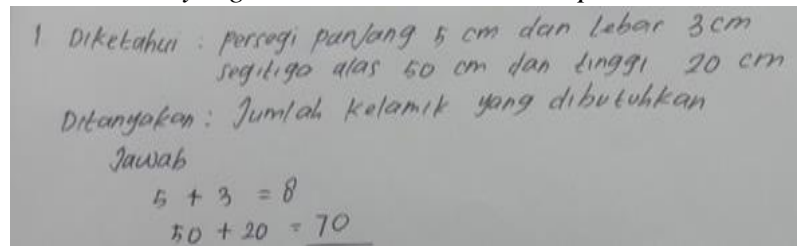 1 Diketahui : persegi panjang 5 cm dan lebar 3 cm
segitiga alas 50 cm dan tinggi 20 cm
Ditanyakan : Jumlah kelamik yang dibutuhkan
Jawab
5 + 3 = 8
50 + 20 = 70